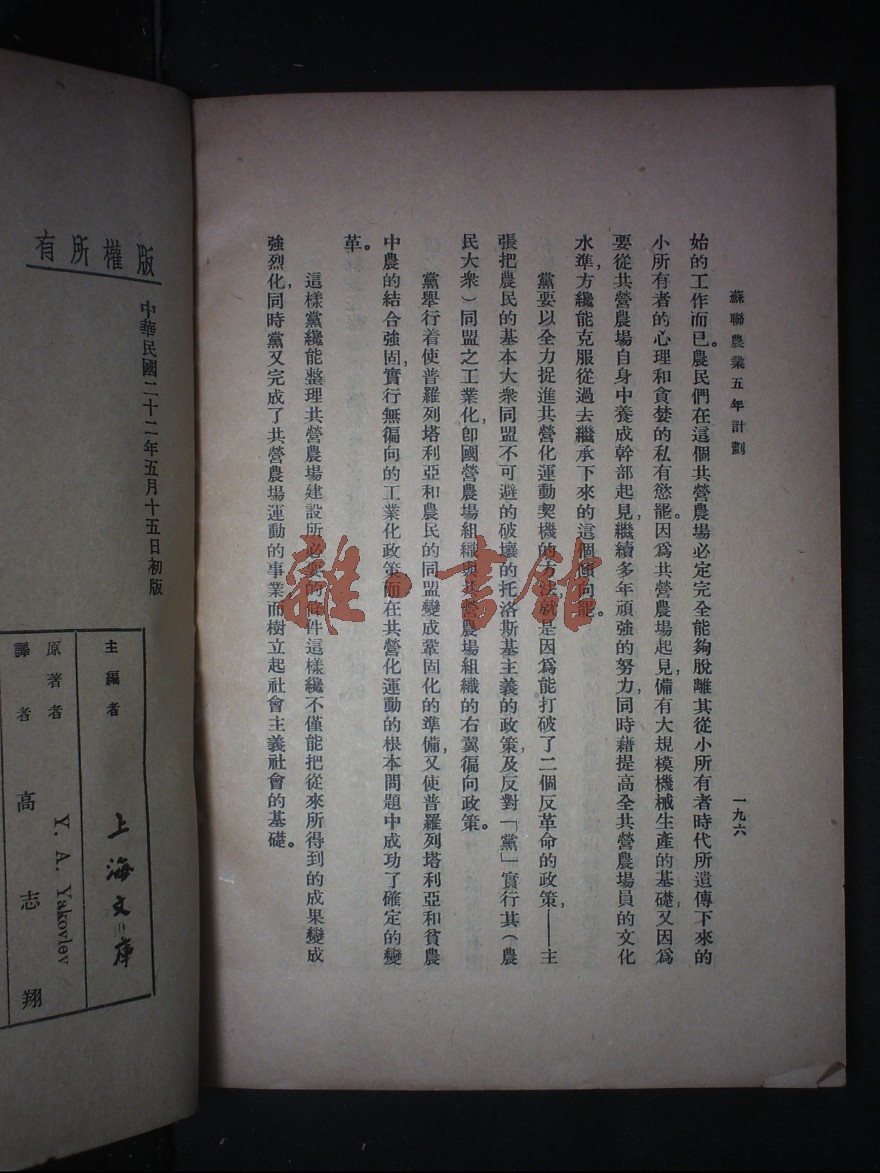 蘇聯農業五年計劃
一九六
始的工作而已。農民們在這個共營農場必定完全能夠脫離其從小所有者時代所遺傳下來的
小所有者的心理和貪婪的私有慾罷。因爲共營農場起見，備有大規模機械生產的基礎，又因爲
要從共營農場自身中養成幹部起見，繼續多年頑強的努力，同時藉提高全共營農場員的文化
水準，方纔能克服從過去繼承下來的這個傾向罷。
黨要以全力捉進共營化運動契機的方法就是因爲能打破了二個反革命的政策，——主
張把農民的基本大衆同盟不可避的破壞的托洛斯基主義的政策，及反對「黨」實行其（農
民大衆）同盟之工業化，卽國營農場組織與共營農場組織的右翼徧向政策。
黨舉行着使普羅列塔利亞和農民的同盟變成鞏固化的準備，又使普羅列塔利亞和貧農
中農的結合強固，實行無徧向的工業化政策而在共營化運動的根本問題中成功了確定的變
革。
這樣黨纔能整理共營農場建設所必要的條件這樣纔不僅能把從來所得到的成果變成
強烈化，同時黨又完成了共營農場運動的事業而樹立起社會主義社會的基礎。
雜·書館
有所權版
中華民國二十二年五月十五日初版
主編者 上海文庫
原著者 Y. A. Yakovlev
譯者 高志翔